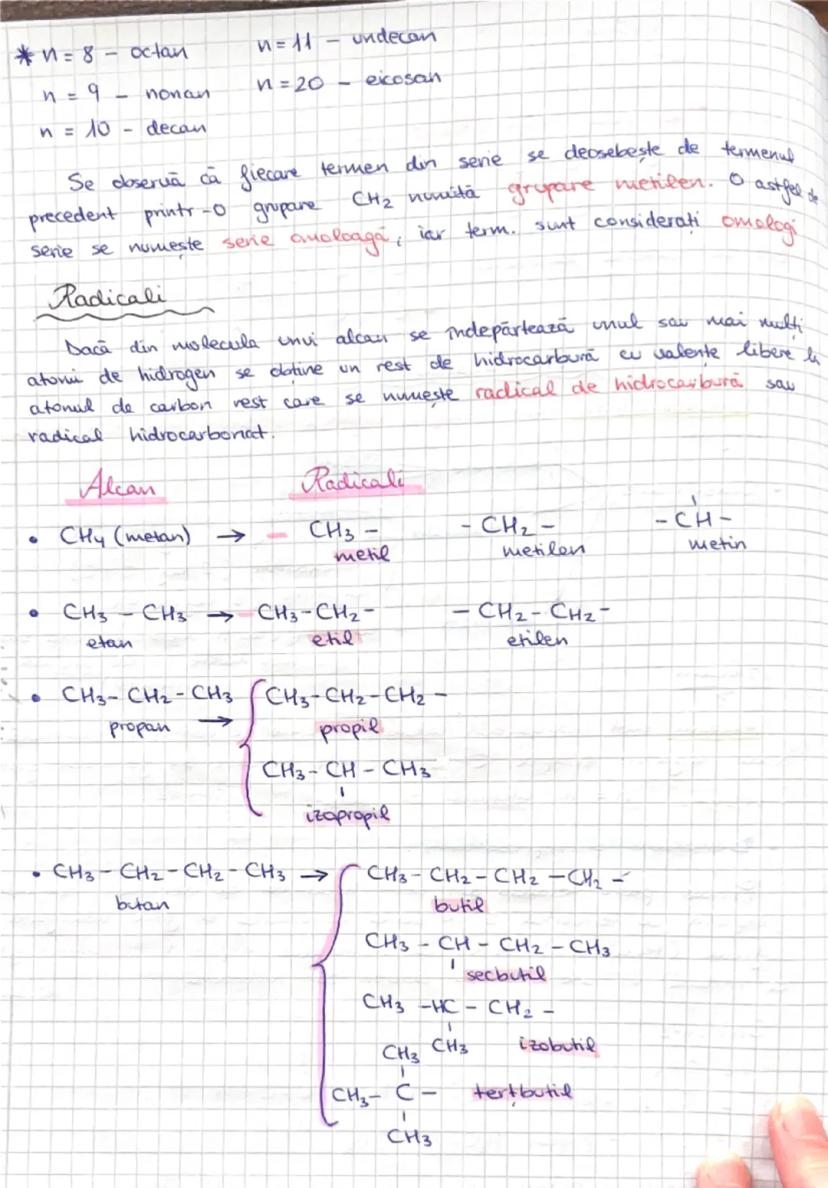 * n = 8 – octan n = 11 – undecan
n = 9 – nonan n = 20 – eicosan
n = 10 – decan
Se observă că fiecare termen din serie se deosebește de termenul
precedent printr-o grupare CH2 numită grupare metilen. O astfel de
serie se numește serie omoloagă, iar term. sunt considerați omologi
Radicali
Dacă din molecula unui alcan se îndepărtează unul sau mai mulți
atomi de hidrogen se obține un rest de hidrocarbură cu valențe libere la
atomul de carbon rest care se numește radical de hidrocarbură sau
radical hidrocarbonat.
Alcan Radicali
• CH4 (metan) → CH3 – - CH2 - - CH -
metil metilen metin
• CH3 – CH3 → CH3-CH2- – CH2- CH2-
etan etil etilen
• CH3- CH2 - CH3 CH3-CH2-CH2 -
propan → propil
CH3- CH - CH3
izopropil
• CH3 - CH2 - CH2 - CH3 → CH3- CH2 - CH2 - CH2 -
butan butil
CH3 - CH - CH2 - CH3
secbutil
CH3 -HC - CH2 -
CH3 CH3 izobutil
CH3- C - terțbutil
CH3